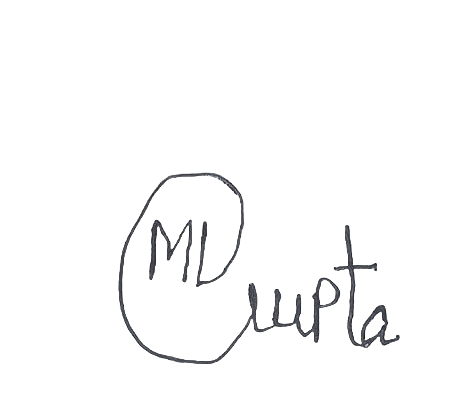 ML Gupta